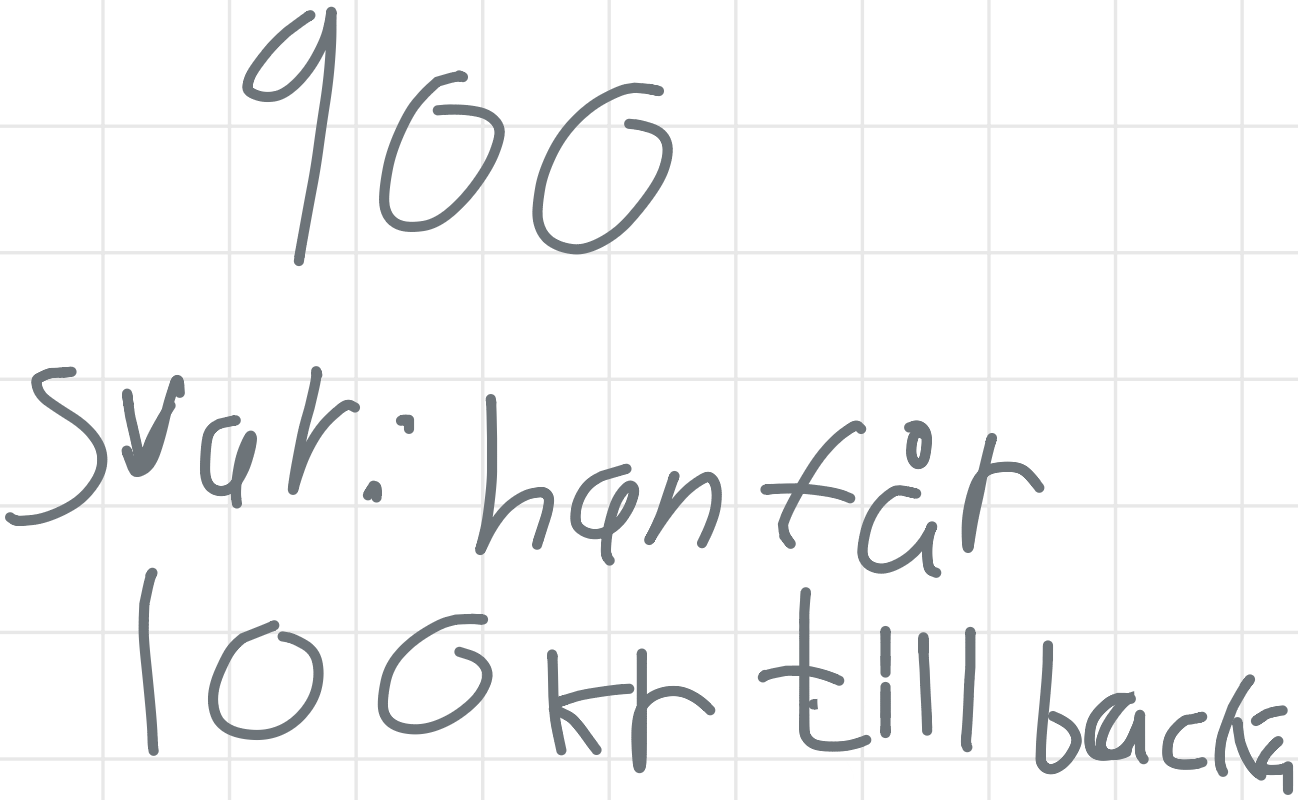 900
Svar: han får
100 kr till backa